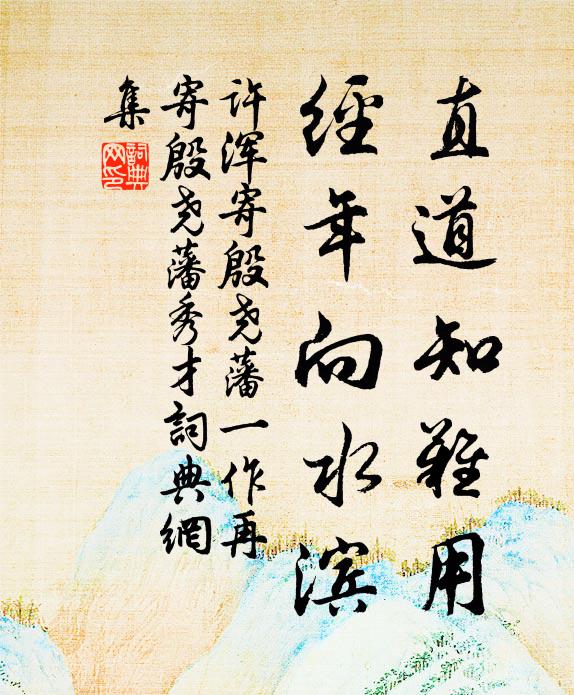 直道知難用
經年向水滨
许浑寄殷尧藩一作再
寄殷尧藩秀才詞典網
集
詞典
网印